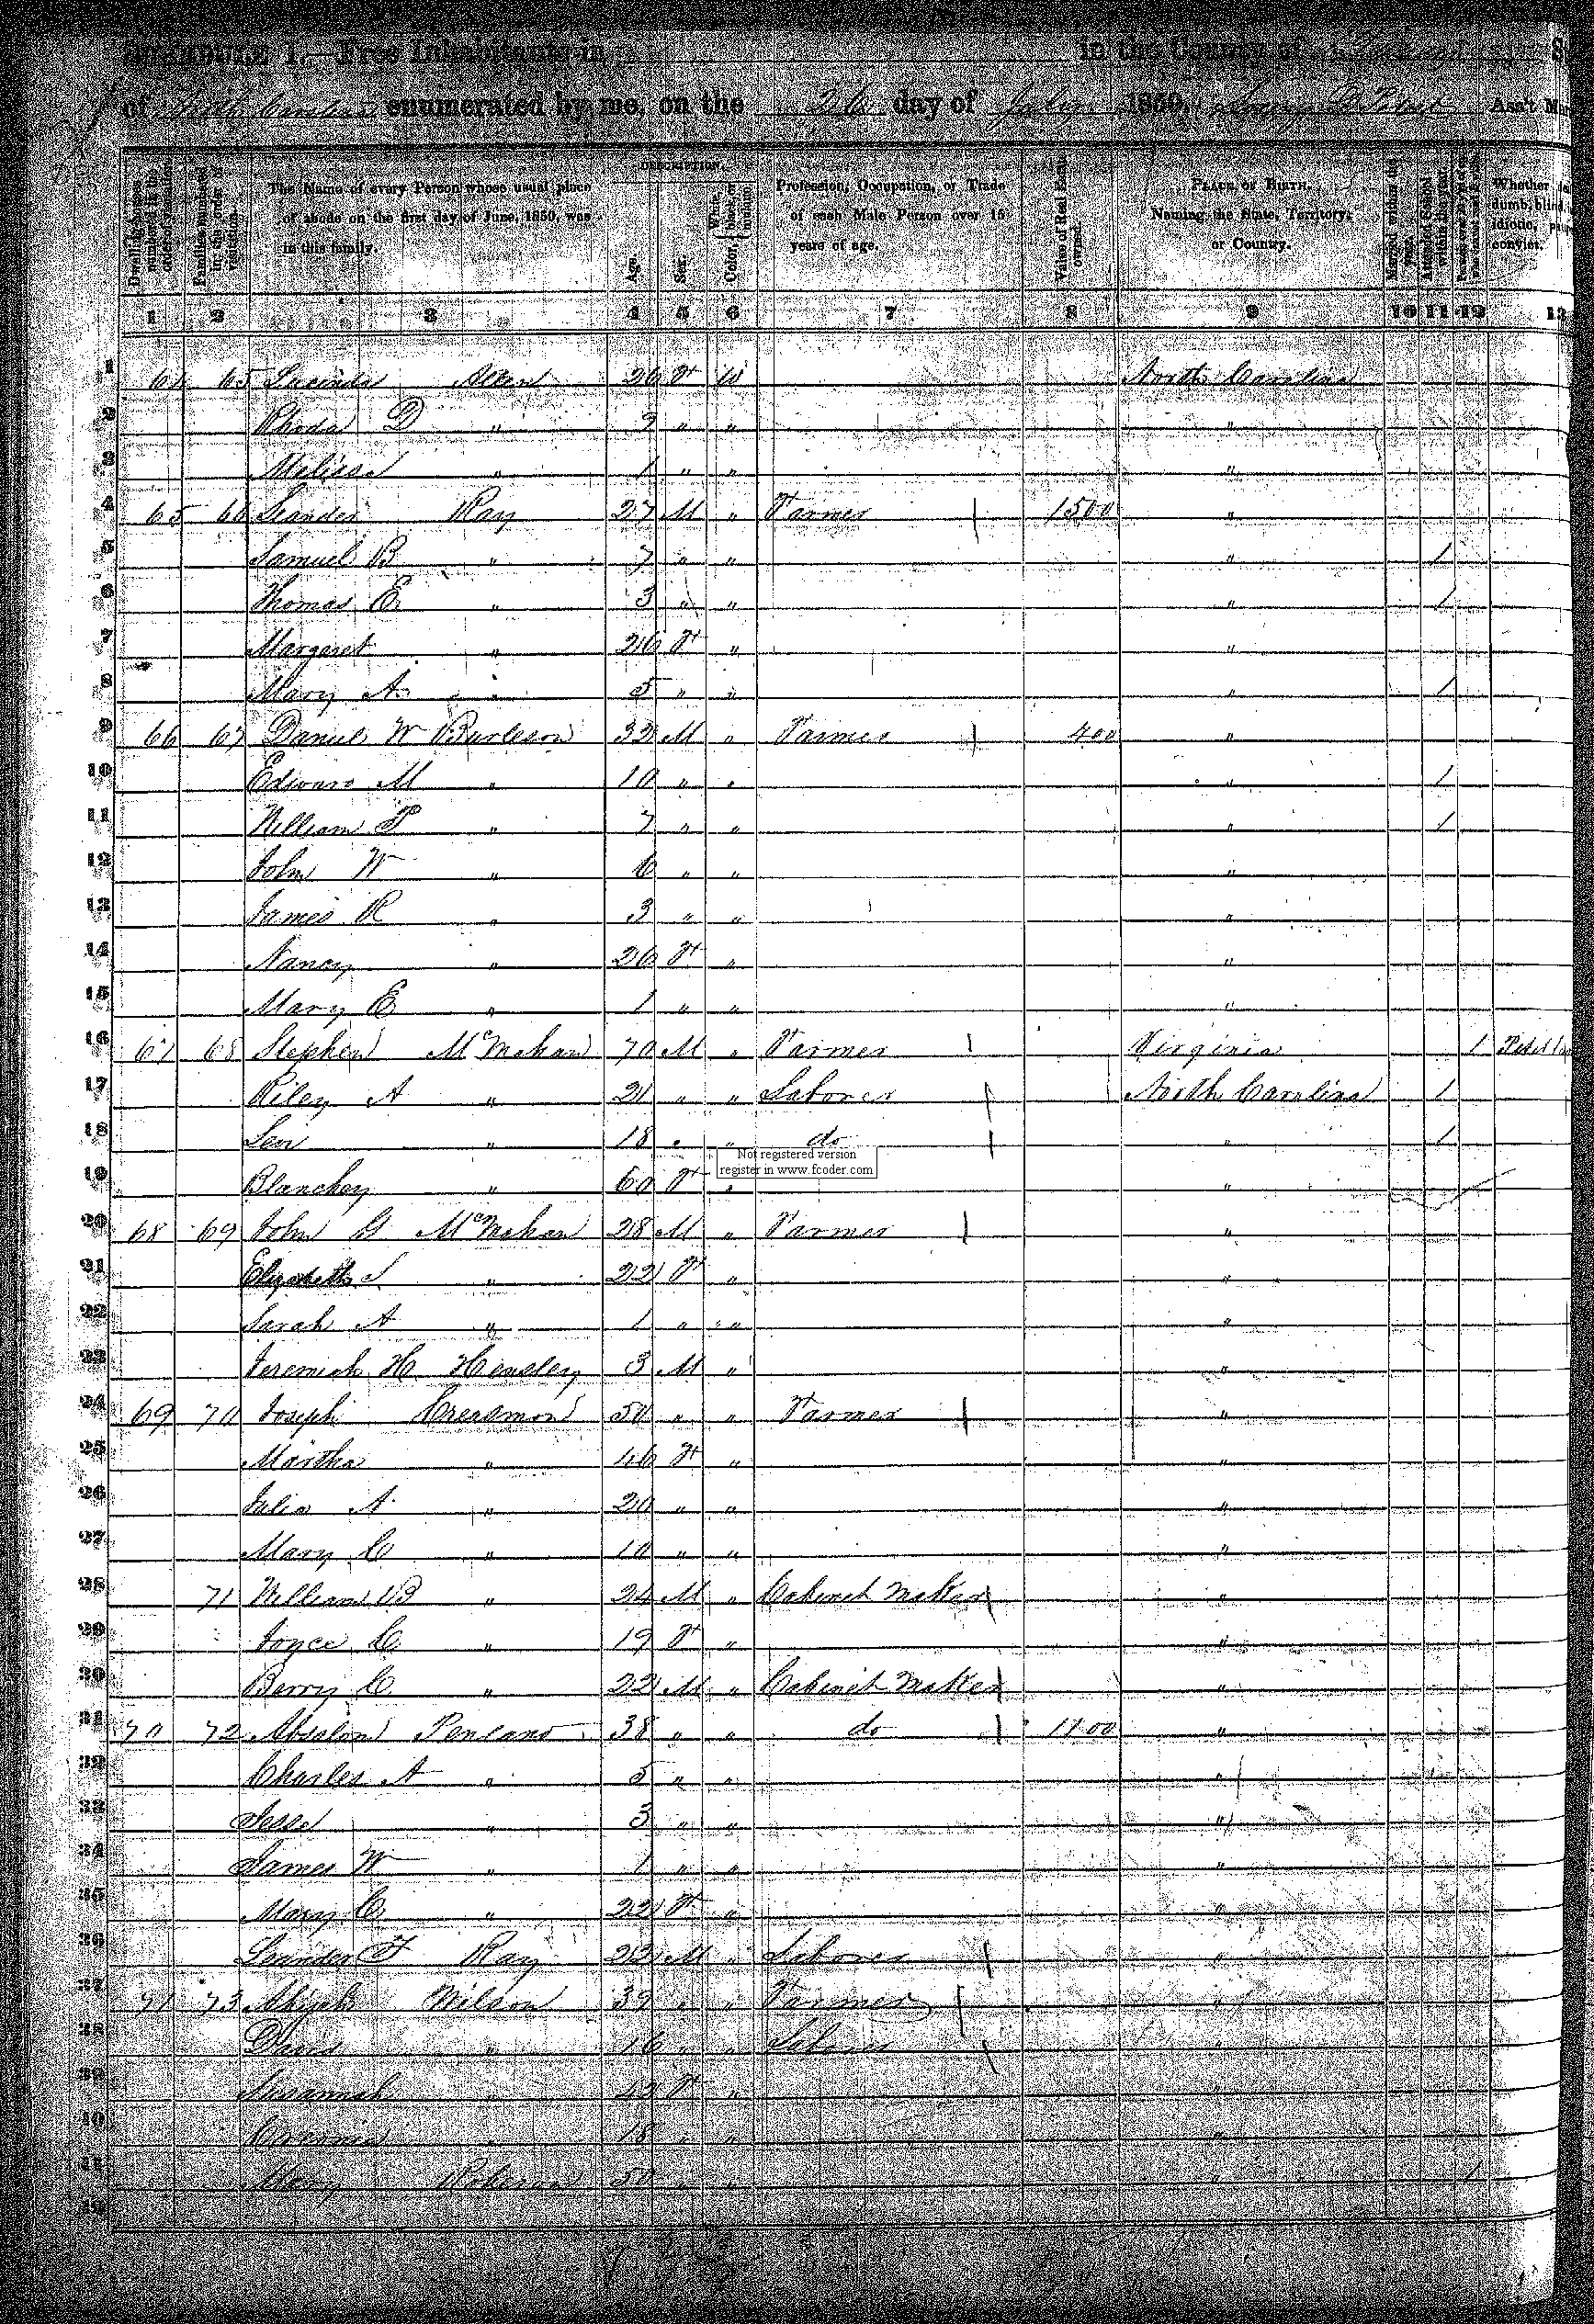 SCHEDULE I.—Free Inhabitants in in the County of
of North Carolina enumerated by me, on the 26 day of July 1850. Ass't
Dwelling-houses numbered in the order of visitation.
Families numbered in the order of visitation.
The Name of every Person whose usual place of abode on the first day of June, 1850, was in this family.
DESCRIPTION.
Age.
Sex.
Color, White, black, or mulatto.
Profession, Occupation, or Trade of each Male Person over 15 years of age.
Value of Real Estate owned.
PLACE OF BIRTH. Naming the State, Territory, or Country.
Married within the year.
Attended School within the year.
Whether dumb, blind, idiotic, convict.
1 2 3 4 5 6 7 8 9 10 11 12 13
1 64 65 Lucinda Allen 26 F W North Carolina
2 Rhoda D " 3 " " "
3 Melissa " 1 " " "
4 65 66 Leander Ray 27 M " Farmer 1500 "
5 Samuel B " 7 " " " 1
6 Thomas E " 3 " " " 1
7 Margaret " 26 F " "
8 Mary A " 5 " " " 1
9 66 67 Daniel W Burleson 32 M " Farmer 400 "
10 Edward M " 10 " " " 1
11 William P " 7 " " " 1
12 John W " 6 " " "
13 James R " 3 " " "
14 Nancy " 26 F " "
15 Mary E " 1 " " "
16 67 68 Stephen McMahan 70 M " Farmer Virginia 1
17 Riley A " 21 " " Laborer North Carolina 1
18 Levi " 18 " " do " 1
Not registered version
register in www.fcoder.com
19 Blanchey " 60 F " "
20 68 69 John G McMahan 28 M " Farmer "
21 Elizabeth " 22 F " "
22 Sarah A " 1 " " "
23 Jeremiah H Hensley 3 M " "
24 69 70 Joseph Creasmon 50 " " Farmer "
25 Martha " 46 F " "
26 Julia A " 20 " " "
27 Mary C " 10 " " "
28 71 William B " 24 M " Cabinet Maker "
29 Joyce C " 19 F " "
30 Berry C " 22 M " Cabinet Maker "
31 70 72 Absalom Penland 38 " " do "
32 Charles A " 5 " " "
33 Jesse " 3 " " "
34 James W " 1 " " "
35 Mary C " 22 F " "
36 Leander F Ray 22 M " Laborer "
37 71 73 Abijah Wilson 39 " " Farmer "
38 David " 16 " " Laborer "
39 Susannah " 42 F " "
40 " 18 " " "
41 Mary 50 " " " 1
42